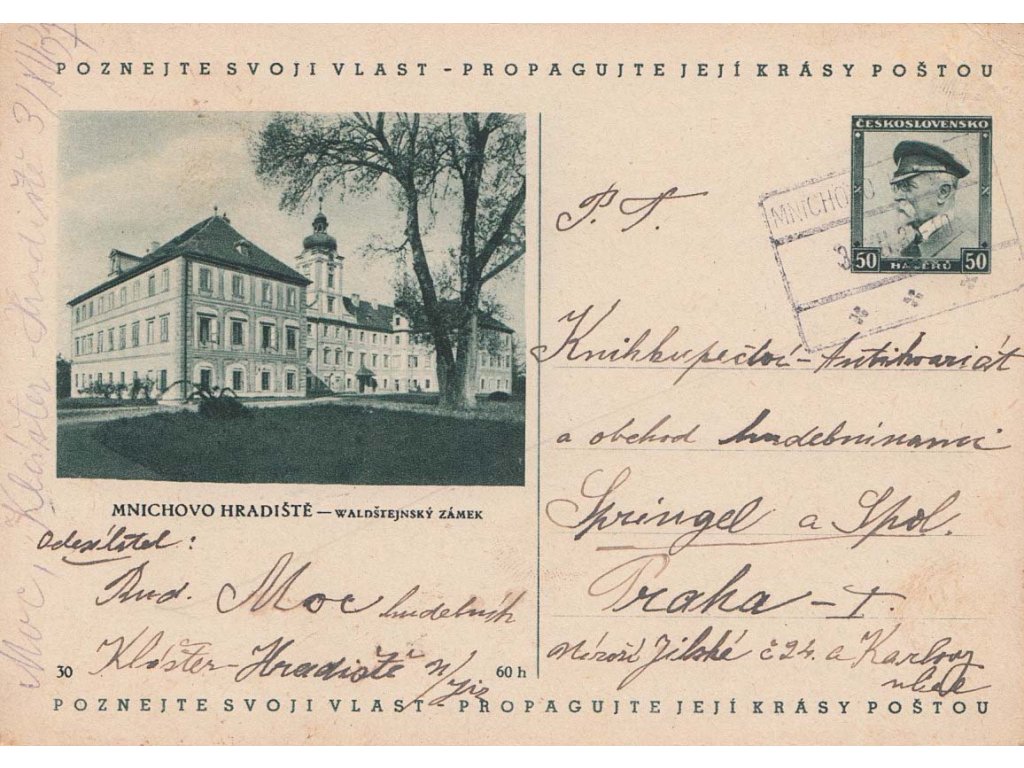 POZNEJTE SVOJI VLAST - PROPAGUJTE JEJÍ KRÁSY POŠTOU
Moc, Klášter-Hradiště 3/XII 37
ČESKOSLOVENSKO
50 HALÉŘŮ 50
MNICHOVO
P. T.
Knihkupectví-Antikvariát
a obchod hudebninami
Springel a Spol.
Praha - I.
Nároží Jilské č 24. a Karlovy
ulice
MNICHOVO HRADIŠTĚ — WALDŠTEJNSKÝ ZÁMEK
Odesílatel:
Rud. Moc hudebník
Klášter-Hradiště n/Jiz
30
60 h
POZNEJTE SVOJI VLAST - PROPAGUJTE JEJÍ KRÁSY POŠTOU